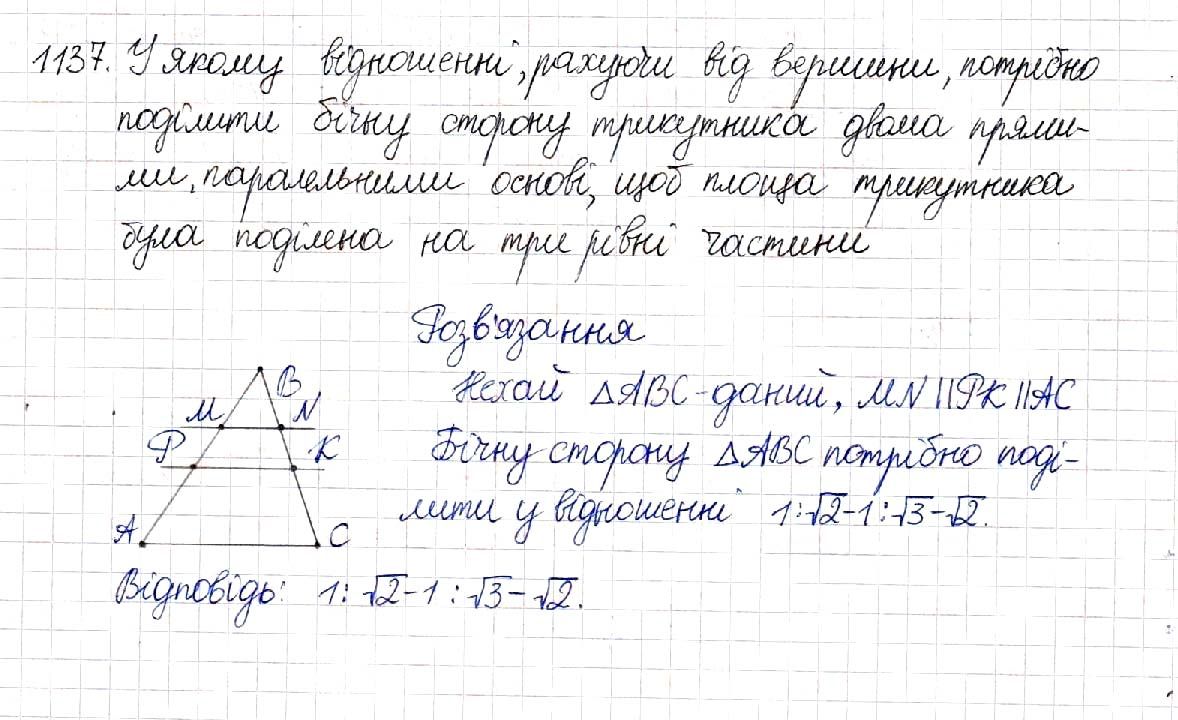 1137. У якому відношенні, рахуючи від вершини, потрібно
поділити бічну сторону трикутника двома прями-
ми, паралельними основі, щоб площа трикутника
була поділена на три рівні частини
Розв'язання
Нехай △ABC - даний, MN || PK || AC
Бічну сторону △ABC потрібно поді-
лити у відношенні 1:√2-1:√3-√2.
B
M N
P K
A C
Відповідь: 1: √2-1 : √3-√2.